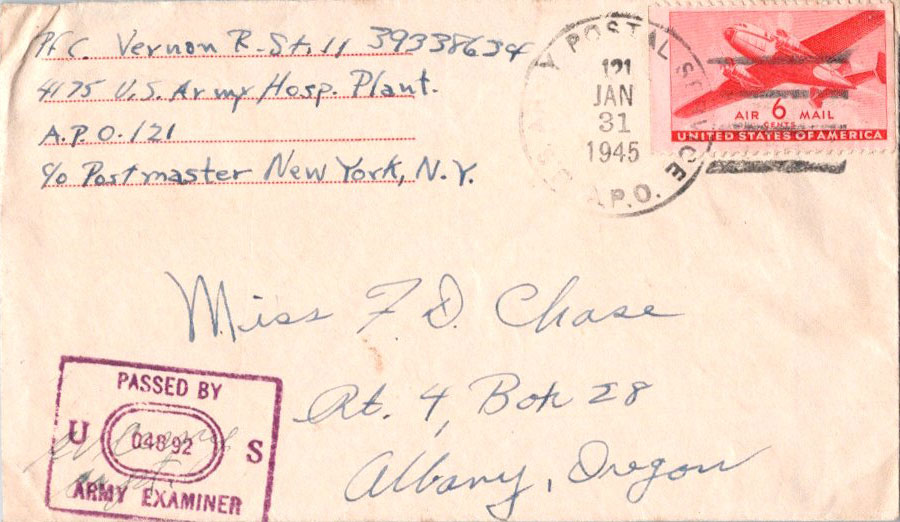 Pfc. Vernon R. Still 39338634
4175 U.S. Army Hosp. Plant.
A.P.O. 121
c/o Postmaster New York, N.Y.
Y POSTAL SERVICE
121
JAN
31
1945
A.P.O.
AIR 6 MAIL
CENTS
UNITED STATES OF AMERICA
Miss F. D. Chase
Rt. 4, Box 28
Albany, Oregon
PASSED BY
U 04892 S
ARMY EXAMINER